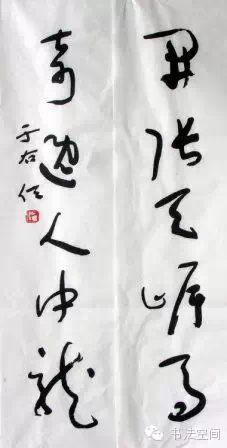 開張天岸馬
奇逸人中龍
于右任
书法空间